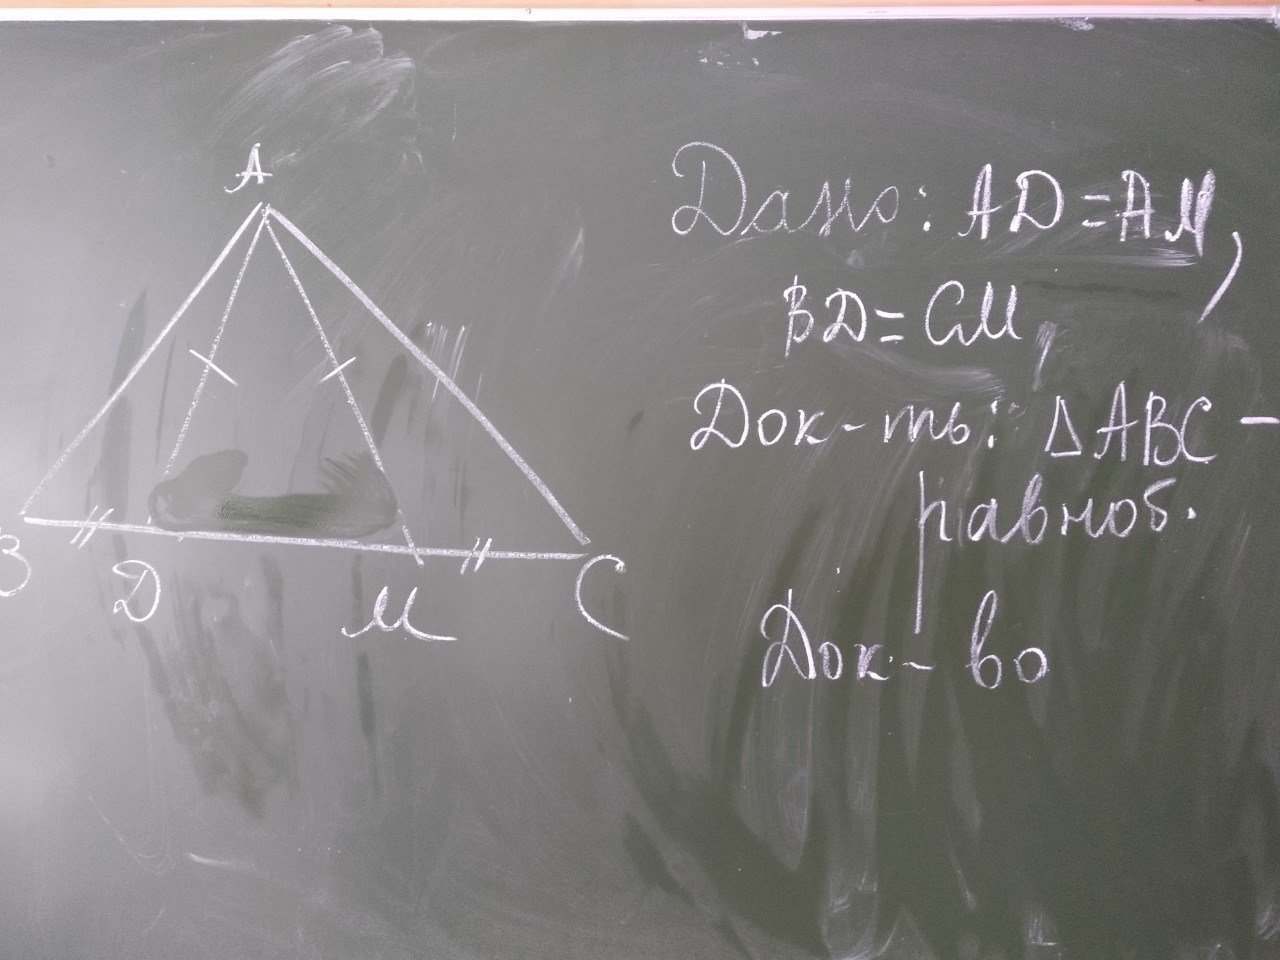 A
B
D
M
C
Дано: AD = AM,
BD = CM,
Док-ть: △ABC –
равноб.
Док-во